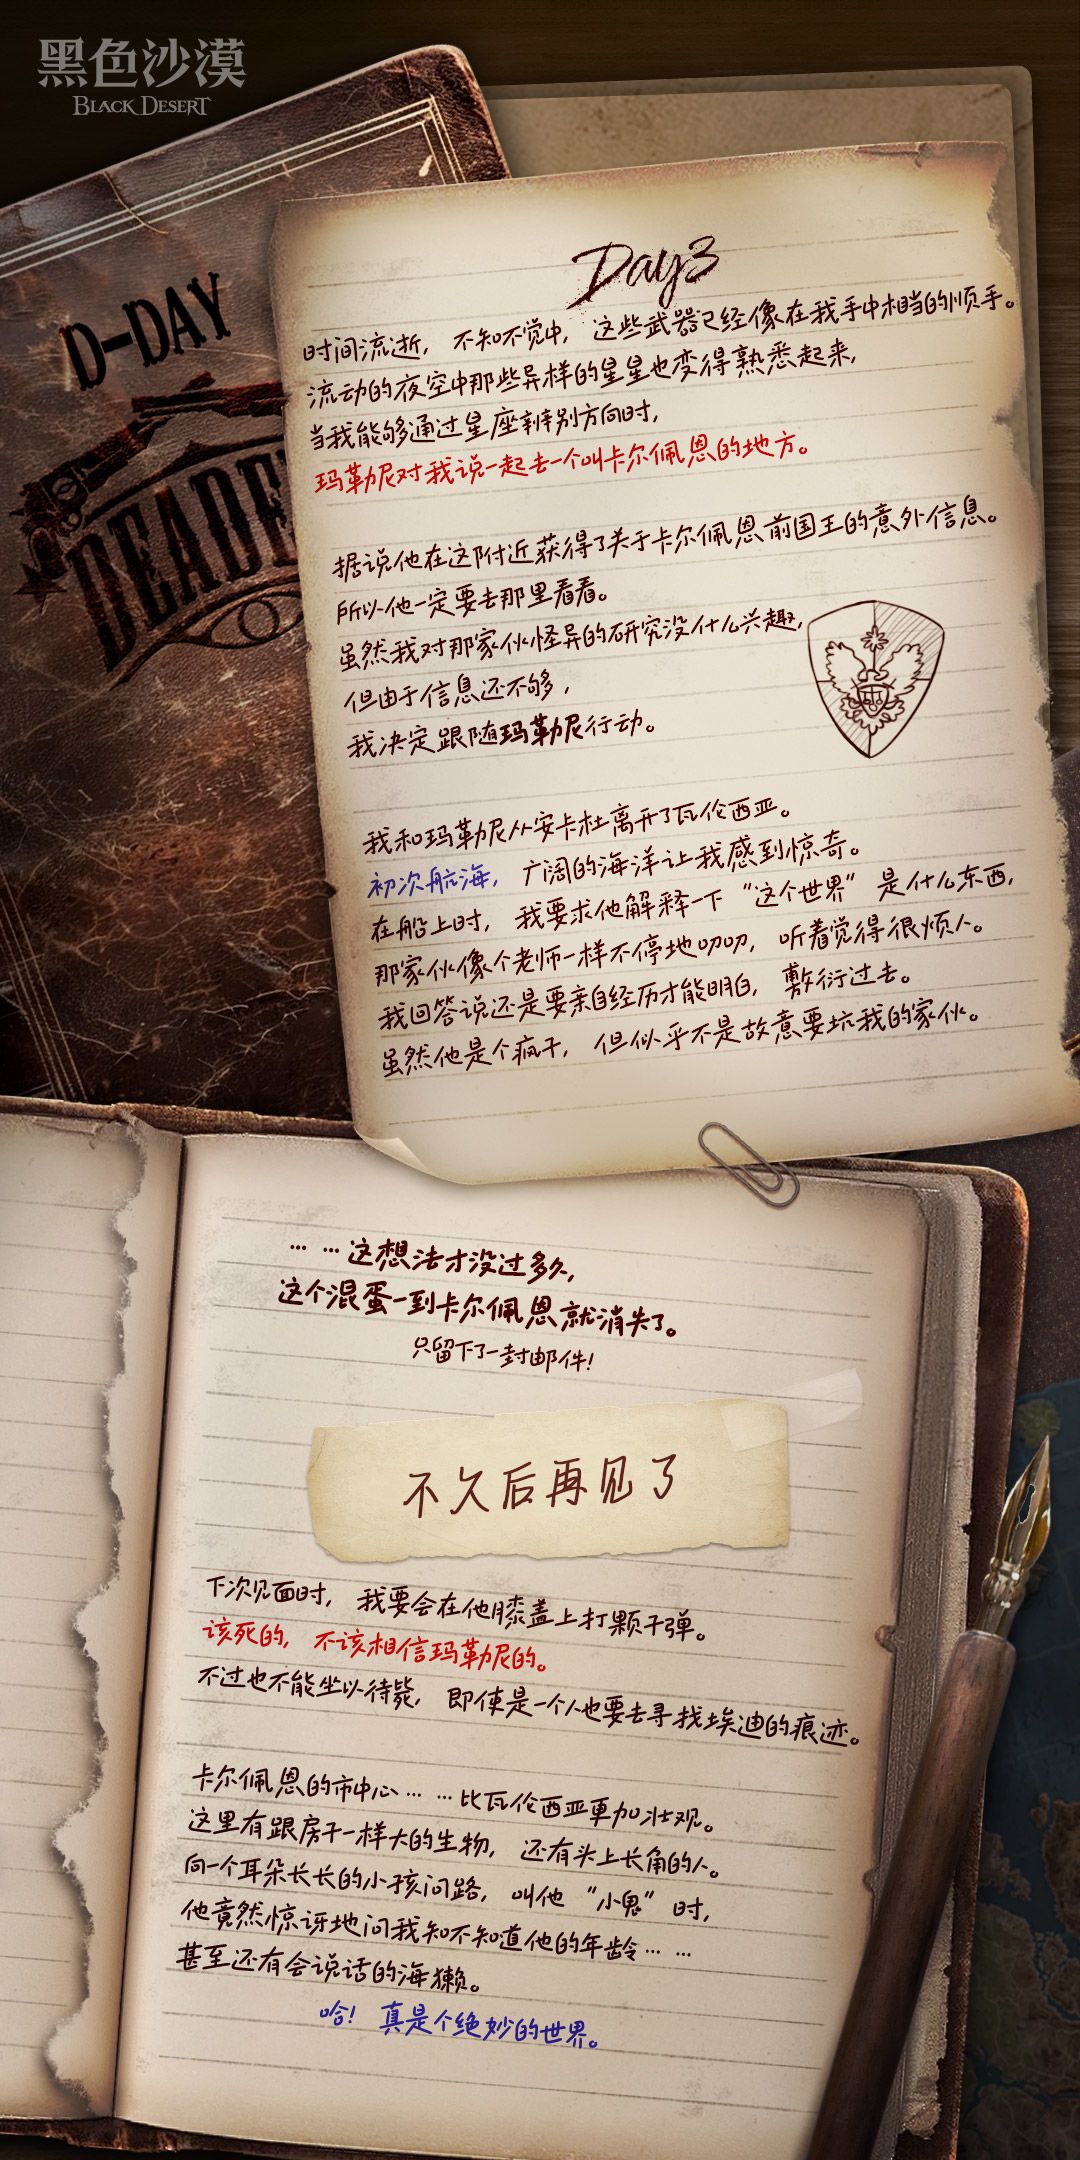 黑色沙漠
BLACK DESERT
D-DAY
Day3
时间流逝，不知不觉中，这些武器已经像在我手中相当的顺手。
流动的夜空中那些异样的星星也变得熟悉起来，
当我能够通过星座辨别方向时，
玛勒尼对我说一起去一个叫卡尔佩恩的地方。
据说他在这附近获得了关于卡尔佩恩前国王的意外信息。
所以他一定要去那里看看。
虽然我对那家伙怪异的研究没什么兴趣，
但由于信息还不够，
我决定跟随玛勒尼行动。
我和玛勒尼从安卡杜离开了瓦伦西亚。
初次航海，广阔的海洋让我感到惊奇。
在船上时，我要求他解释一下“这个世界”是什么东西，
那家伙像个老师一样不停地叨叨，听着觉得很烦人。
我回答说还是要亲自经历才能明白，敷衍过去。
虽然他是个疯子，但似乎不是故意要坑我的家伙。
… …这想法才没过多久，
这个混蛋一到卡尔佩恩就消失了。
只留下了一封邮件！
不久后再见了
下次见面时，我要会在他膝盖上打颗子弹。
该死的，不该相信玛勒尼的。
不过也不能坐以待毙，即使是一个人也要去寻找埃迪的痕迹。
卡尔佩恩的市中心… …比瓦伦西亚更加壮观。
这里有跟房子一样大的生物，还有头上长角的人。
向一个耳朵长长的小孩问路，叫他“小鬼”时，
他竟然惊讶地问我知不知道他的年龄… …
甚至还有会说话的海獭。
哈！真是个绝妙的世界。